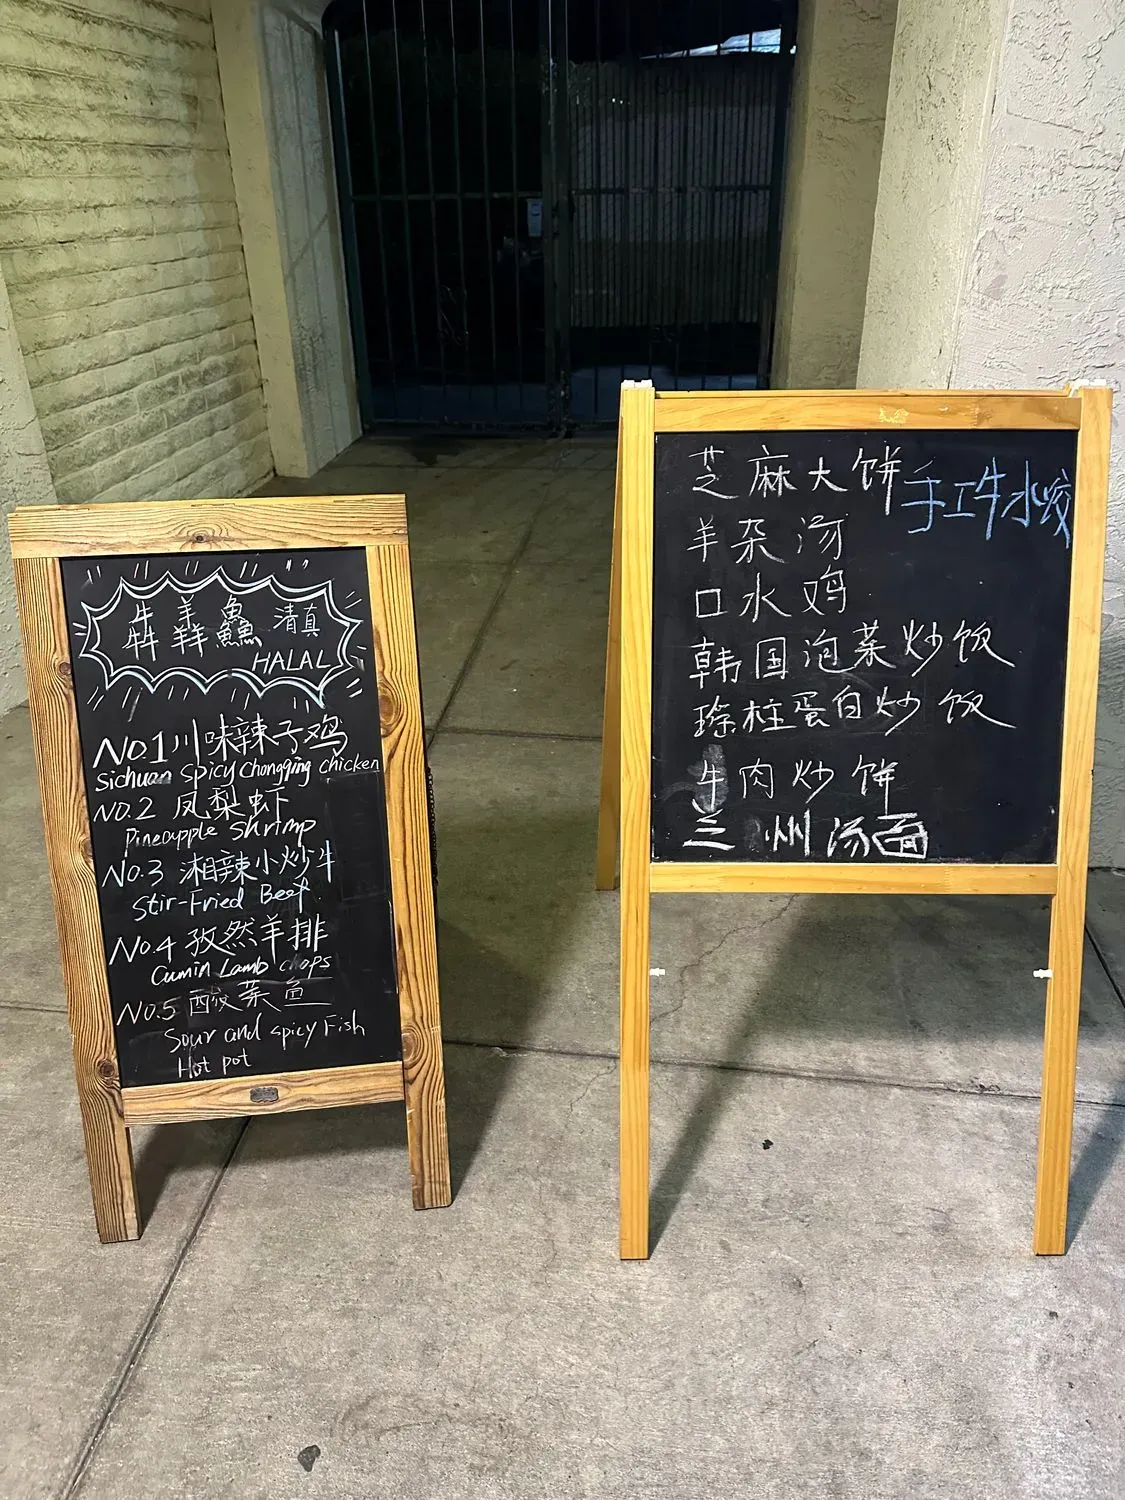 犇羴鱻 清真
HALAL
No.1 川味辣子鸡
Sichuan Spicy Chongqing chicken
NO.2 凤梨虾
Pineapple Shrimp
NO.3 湘辣小炒牛
Stir-Fried Beef
NO.4 孜然羊排
Cumin Lamb chops
NO.5 酸菜鱼
Sour and spicy Fish
Hot pot
芝麻大饼
手工牛水饺
羊杂汤
口水鸡
韩国泡菜炒饭
瑶柱蛋白炒饭
牛肉炒饼
兰州汤面